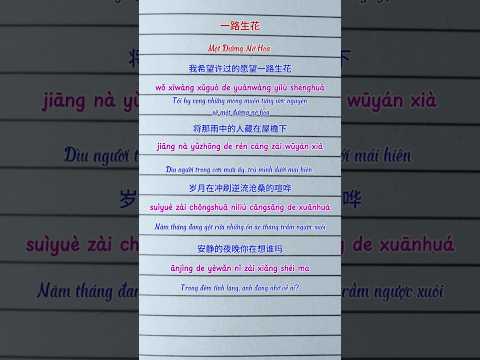 一路生花
Một Đường Nở Hoa
我希望许过的愿望一路生花
wǒ xīwàng xǔguò de yuànwàng yílù shēnghuā
Tôi hy vọng những mong muốn từng ước nguyện
sẽ một đường nở hoa
将那雨中的人藏在屋檐下
jiāng nà yǔzhōng de rén cáng zài wūyán xià
Dìu người trong cơn mưa ấy, trú mình dưới mái hiên
岁月在冲刷逆流沧桑的喧哗
suìyuè zài chōngshuā nìliú cāngsāng de xuānhuá
Năm tháng đang gột rửa những ồn ào thăng trầm ngược xuôi
安静的夜晚你在想谁吗
ānjìng de yèwǎn nǐ zài xiǎng shéi ma
Trong đêm tĩnh lặng, anh đang nhớ về ai?
jiāng
wūyán xià
Dìu người
mái hiên
suìyuè zài
de xuānhuá
Năm tháng
trầm ngược xuôi